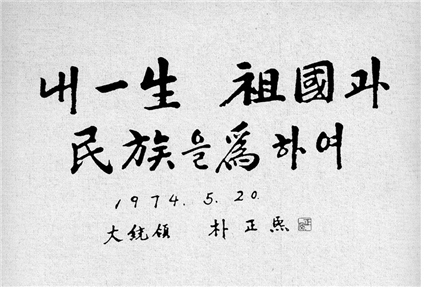 내一生 祖國과
民族을爲하여
1974. 5. 20.
大統領 朴正熙